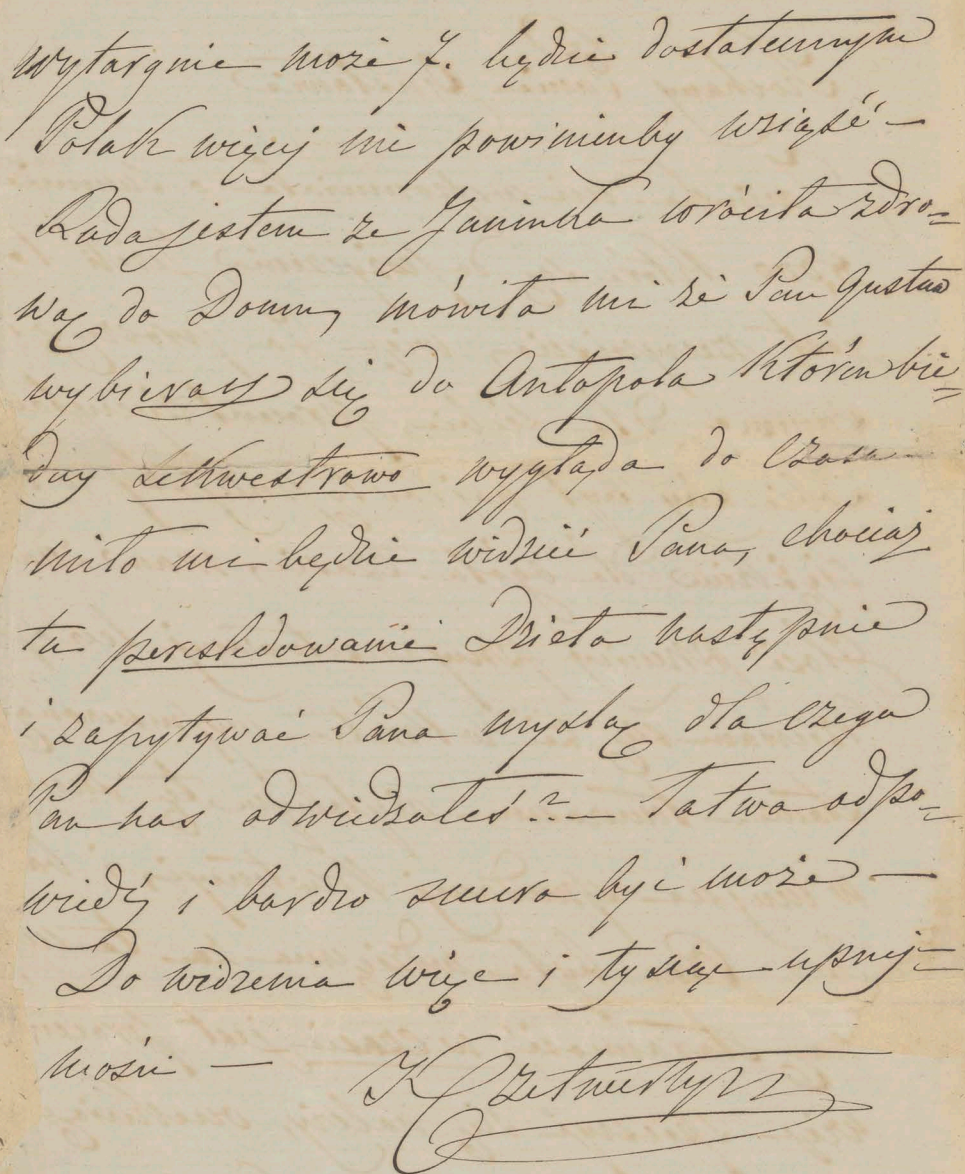 wytargnie może 7. będzie dostatecznym
Polak więcej nie powinienby wziąść –
Rada jestem ze Janinka wróciła zdro=
wą do Domu, mówiła mi że Pan Gustaw
wybierasz się do Antopola którén bie=
dny sekwestrowo wygląda do czasu
miło mi będzie widzieć Pana, chociaż
ta peresledowanie Dzieła następnie
i zapytywać Pana myślą dla czego
Pan nas odwiedzałeś?– Łatwa odpo=
wiedź i bardzo być może –
Do widzenia więc i tysiąc uprzej=
mości – K Czetwertyń